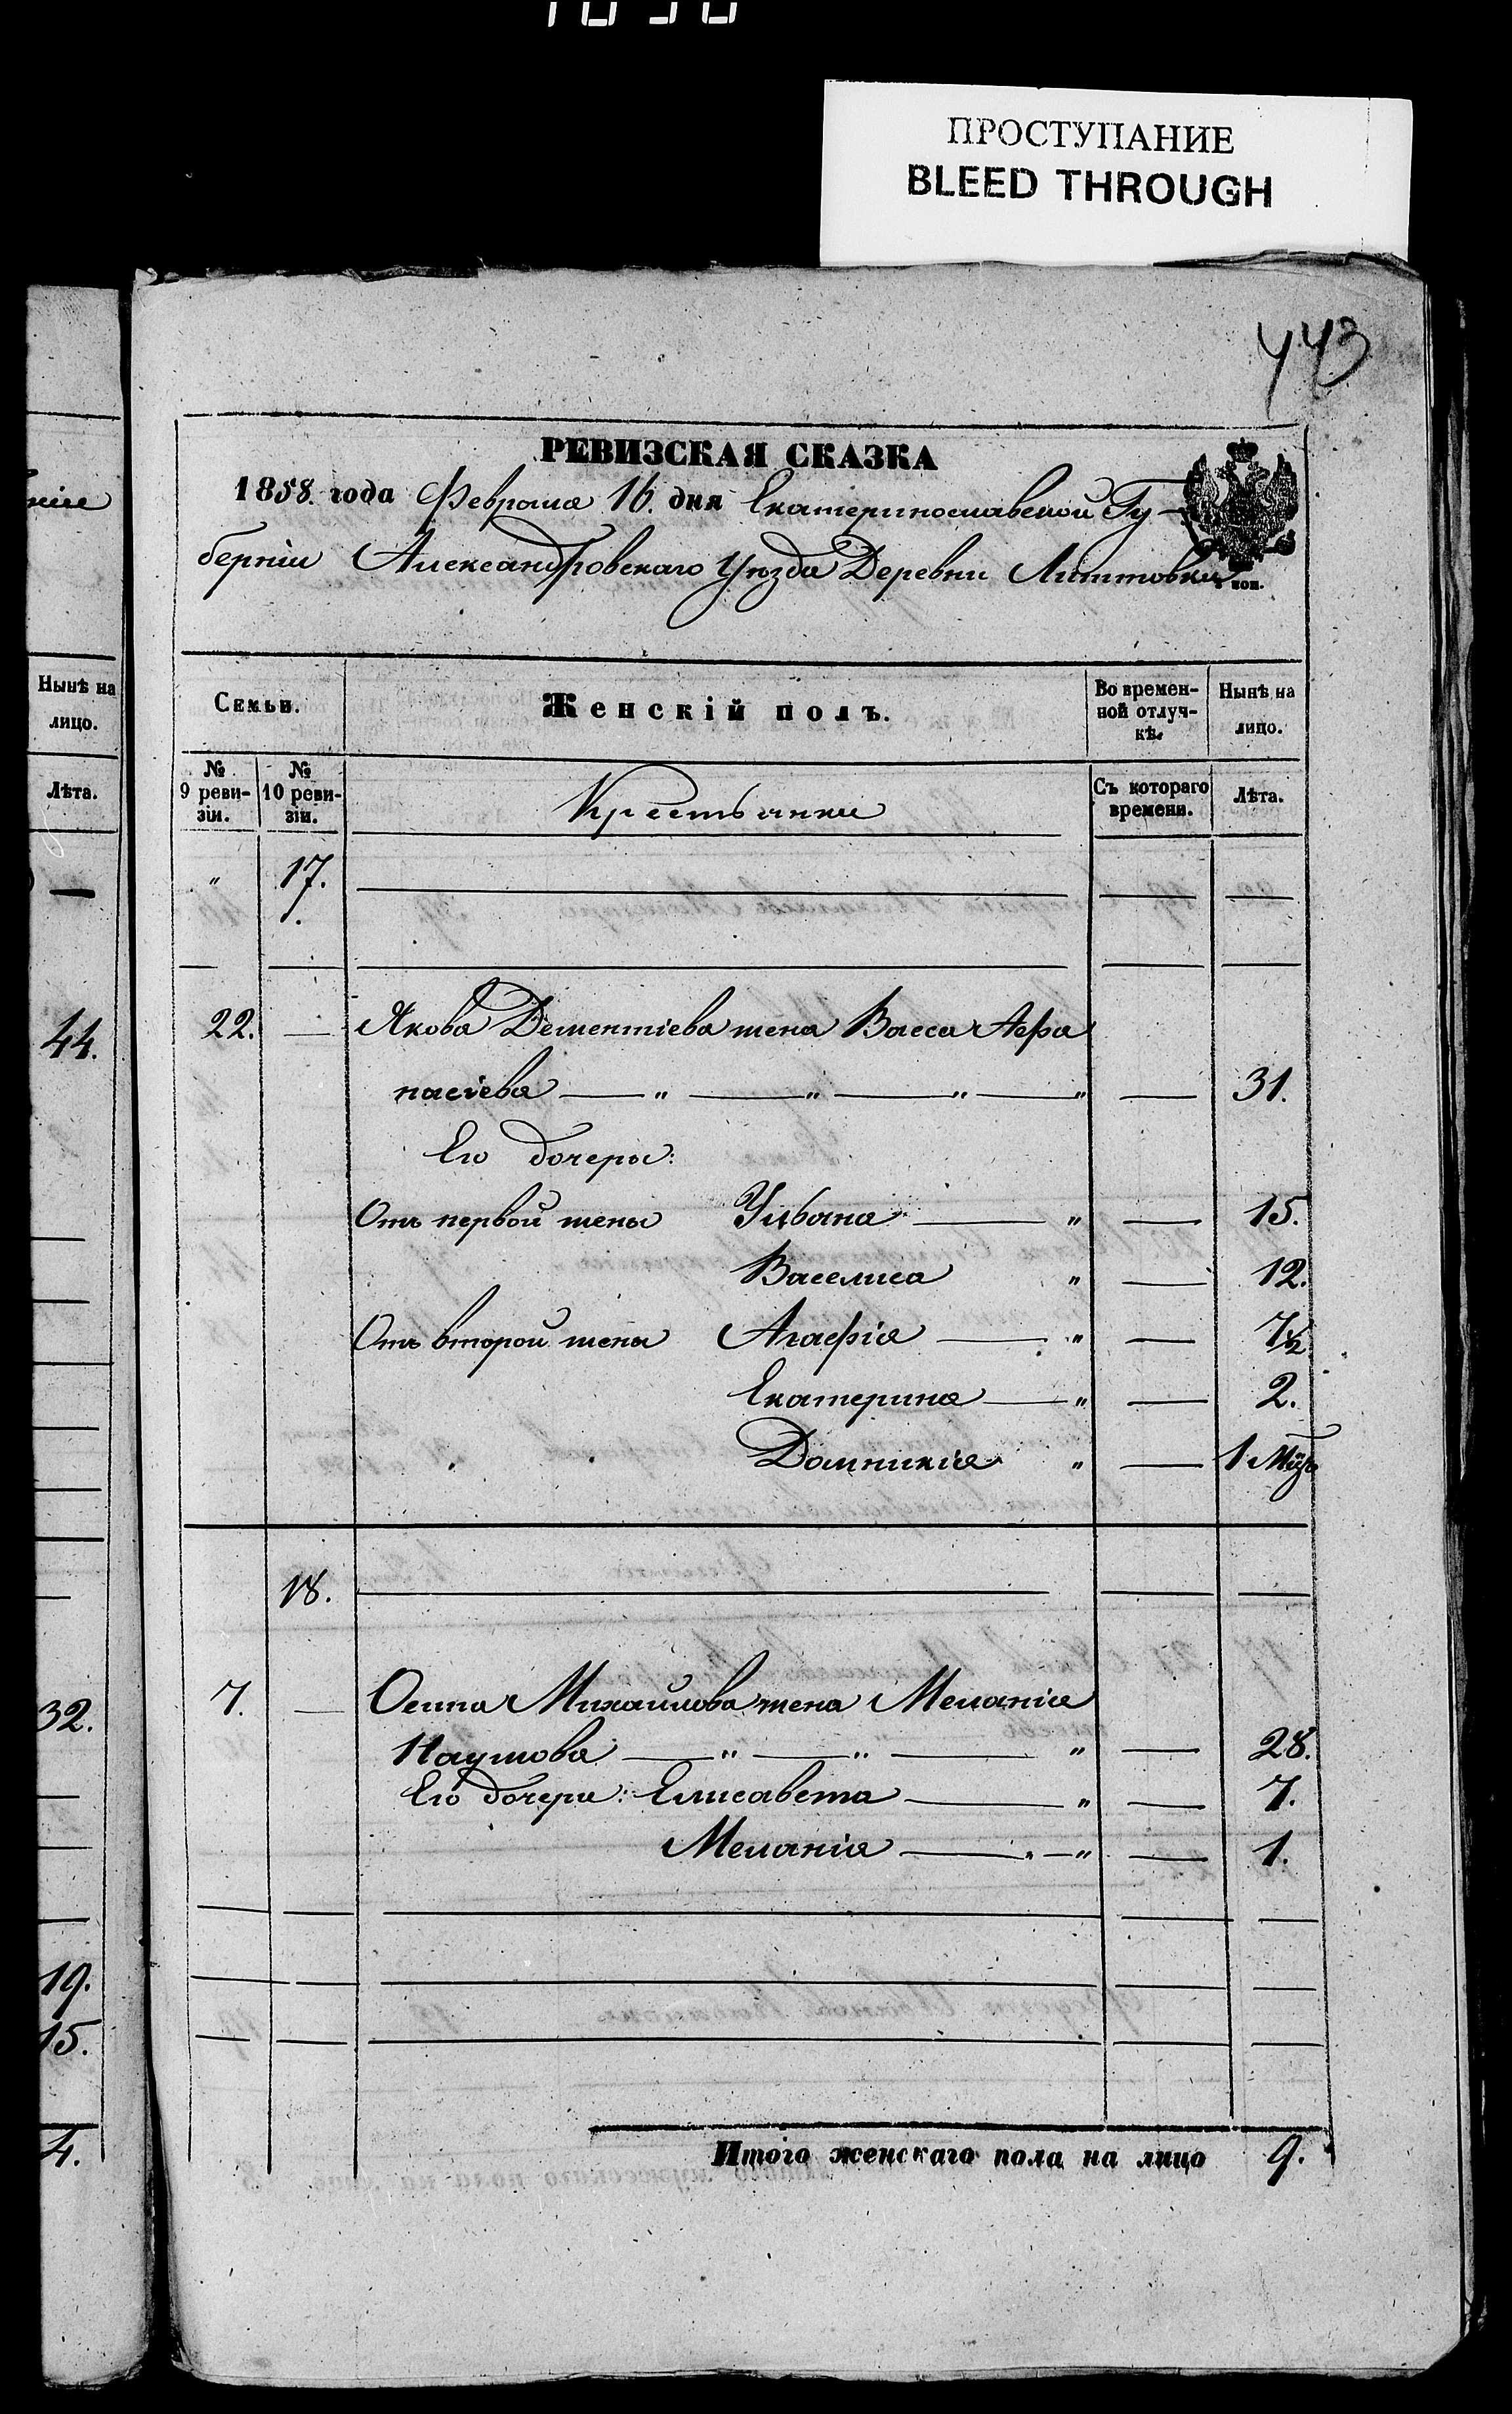 ПРОСТУПАНИЕ
BLEED THROUGH
443
РЕВИЗСКАЯ СКАЗКА
1858 года Февраля 16. дня Екатеринославской Гу-
берніи Александровскаго Уѣзда Деревни
коп.
Нынѣ на лицо.
Лѣта.
44.
32.
19.
15.
4.
Семьи. Женскій полъ. Во времен-ной отлуч-кѣ. Нынѣ на лицо.
№ 9 реви-зіи. № 10 реви-зіи. Крестьянки Съ котораго времени. Лѣта.
" 17.
22. — Якова Дементіева жена Васса Афа
насіева — " — " — " — " — 31.
Его дочери:
Отъ первой жены Ульяна — " — 15.
Василиса " — 12.
Отъ второй жены Агафія — " — 7½
Екатерина — " — 2.
Домникія " — 1 Мѣс
18.
7. — Осипа Михайлова жена Меланія
Наумова — " — " — " — 28.
Его дочери: Елисавета — " — 7.
Меланія — " — " — 1.
Итого женскаго пола на лицо 9.